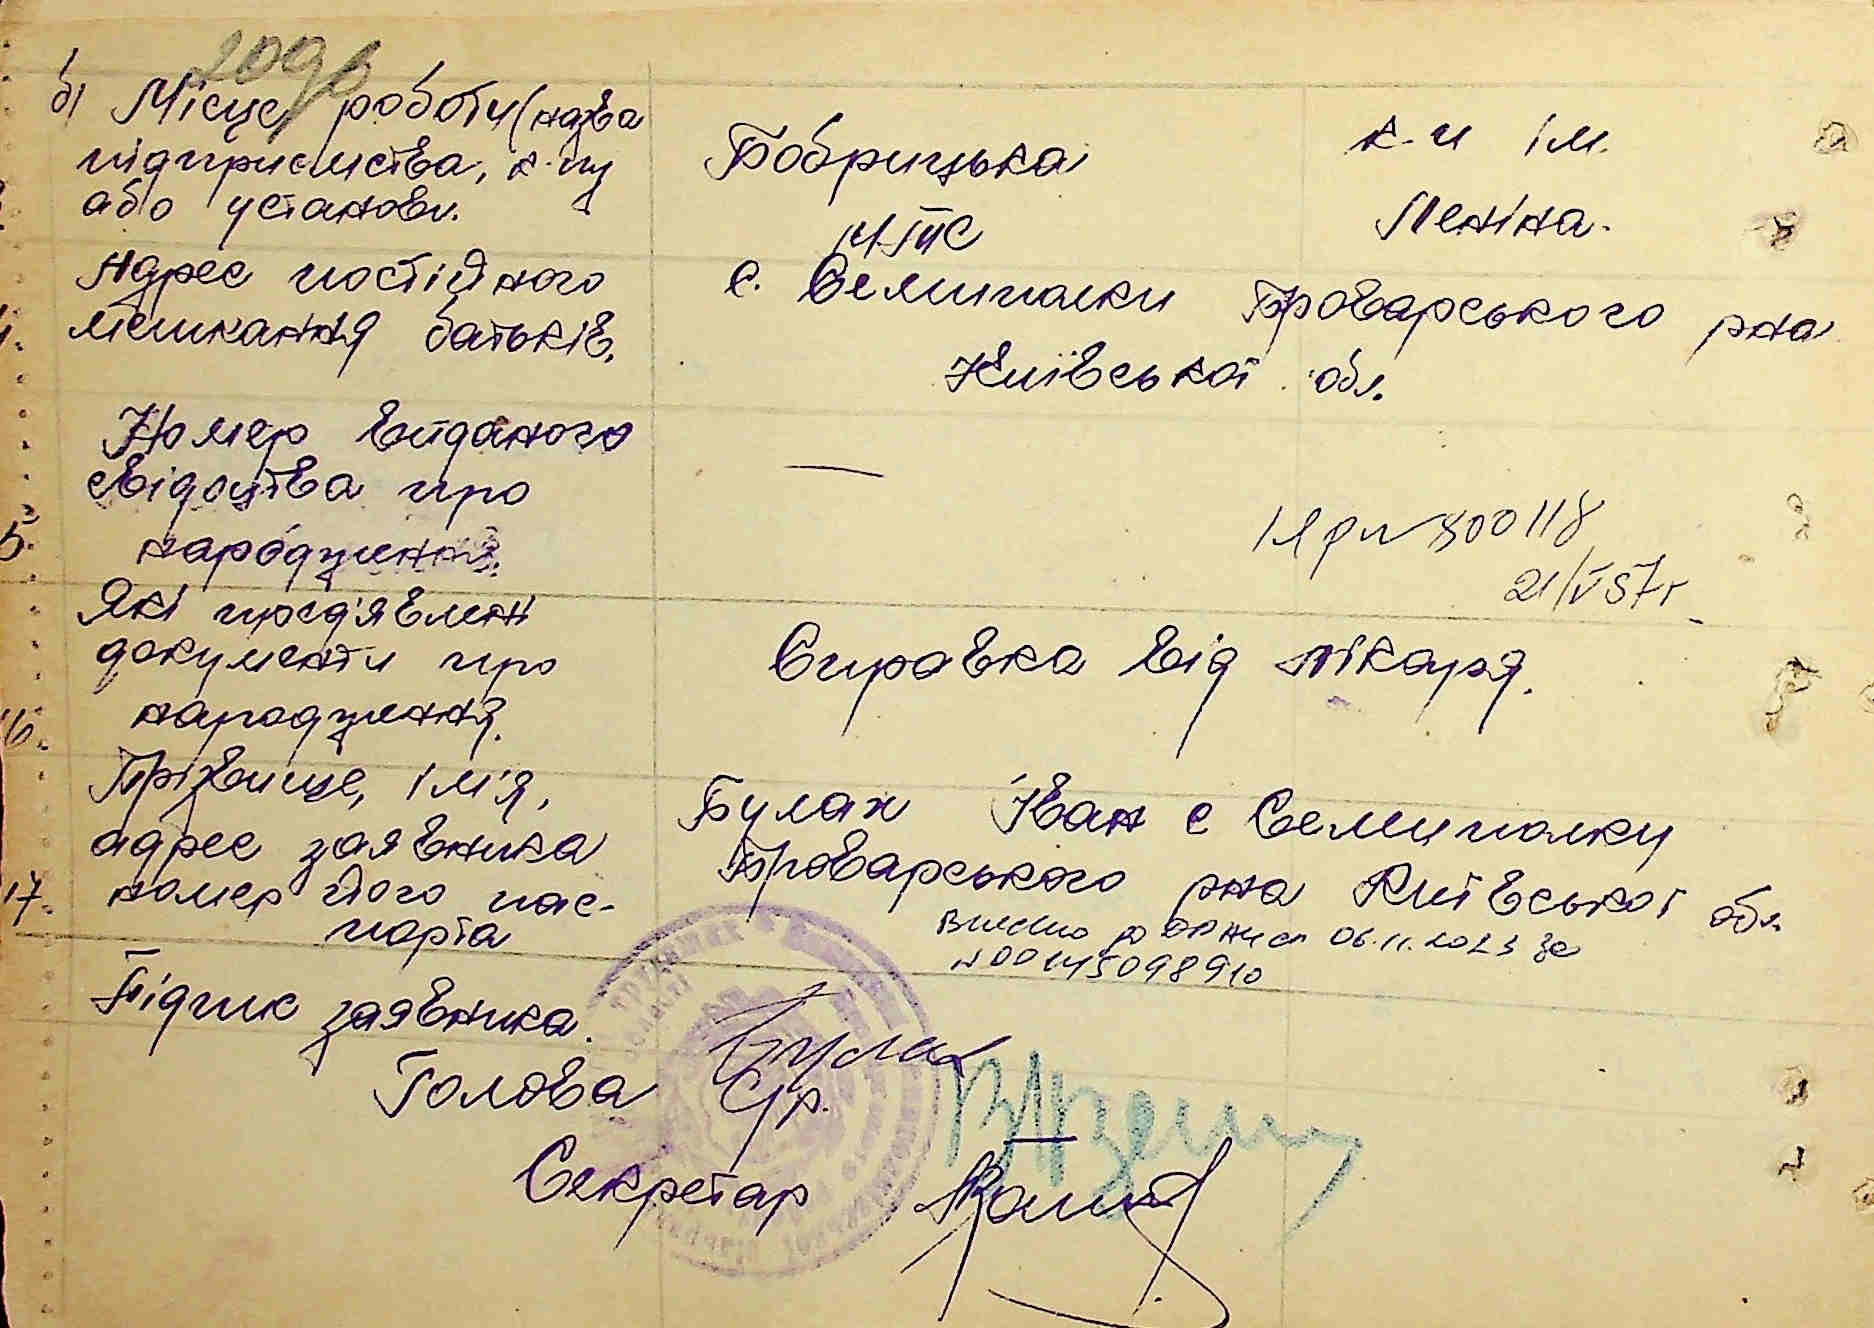 209в
б) Місце роботи (назва
підприємства, к-пу
або установи.
Бобрицька
МТС
к-п ім.
Леніна.
4. Адрес постійного
мешкання батьків.
с. Семиполки Броварського р-на
Київської обл.
Номер виданого
свідоцтва про
5. народження.
—
№ 300118
21/V 57 г
Які пред'явлені
документи про
16. народження.
Справка від лікаря.
Прізвище, ім'я,
адрес заявника
17. номер його пас-
порта
Булах Іван с Семиполки
Броварського р-на Київської обл.
Внесено до ДРАЦСГ 06.11.2023 за
N00145098910
Підпис заявника.
Булах
Голова С/р.
Секретар